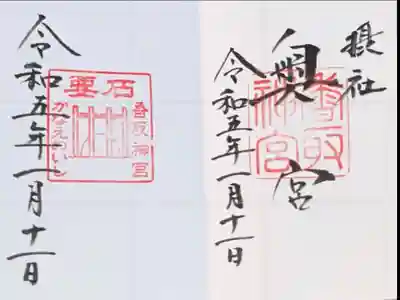 摂社
奥宮
香取神宮
令和五年一月十一日
要石
香取神宮
かなめいし
令和五年一月十一日